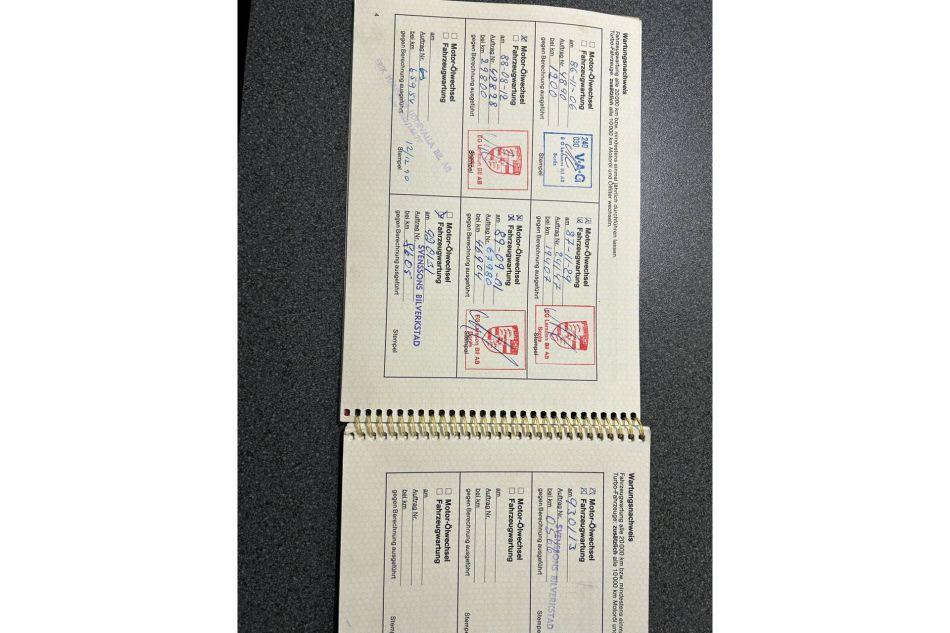 Wartungsnachweis
Fahrzeugwartung alle 20 000 km bzw. mindestens einmal jährlich durchführen lassen.
Turbo-Fahrzeuge: zusätzlich alle 10 000 km Motoröl und Ölfilter wechseln.
Motor-Ölwechsel
Fahrzeugwartung
am 86-11-06
Auftrag Nr. 4890
bei km 1200
gegen Berechnung ausgeführt
Stempel
240
030
V.A.G
Borås
Motor-Ölwechsel
Fahrzeugwartung
am 87-11-89
Auftrag Nr.
bei km 19407
gegen Berechnung ausgeführt
Stempel
Bil AB
Borås
Motor-Ölwechsel
Fahrzeugwartung
am 88-08-12
Auftrag Nr. 42828
bei km 29800
gegen Berechnung ausgeführt
Stempel
Bil AB
Motor-Ölwechsel
Fahrzeugwartung
am 89-09-01
Auftrag Nr. 67980
bei km 46904
gegen Berechnung ausgeführt
Stempel
Bil AB
Motor-Ölwechsel
Fahrzeugwartung
am
Auftrag Nr.
bei km 65954 12/12 90
gegen Berechnung ausgeführt
Stempel
BIL AB
Motor-Ölwechsel
Fahrzeugwartung
am
Auftrag Nr. SVENSSONS BILVERKSTAD
bei km 8605
gegen Berechnung ausgeführt
Stempel
4
Wartungsnachweis
Fahrzeugwartung alle 20 000 km bzw. mindestens
Turbo-Fahrzeuge: zusätzlich alle 10 000 km Motoröl
Motor-Ölwechsel
Fahrzeugwartung
am 930113
Auftrag Nr. SVENSSONS BILVERKSTAD
bei km
gegen Berechnung ausgeführt
Motor-Ölwechsel
Fahrzeugwartung
am
Auftrag Nr.
bei km
gegen Berechnung ausgeführt
Motor-Ölwechsel
Fahrzeugwartung
am
Auftrag Nr.
bei km
gegen Berechnung ausgeführt